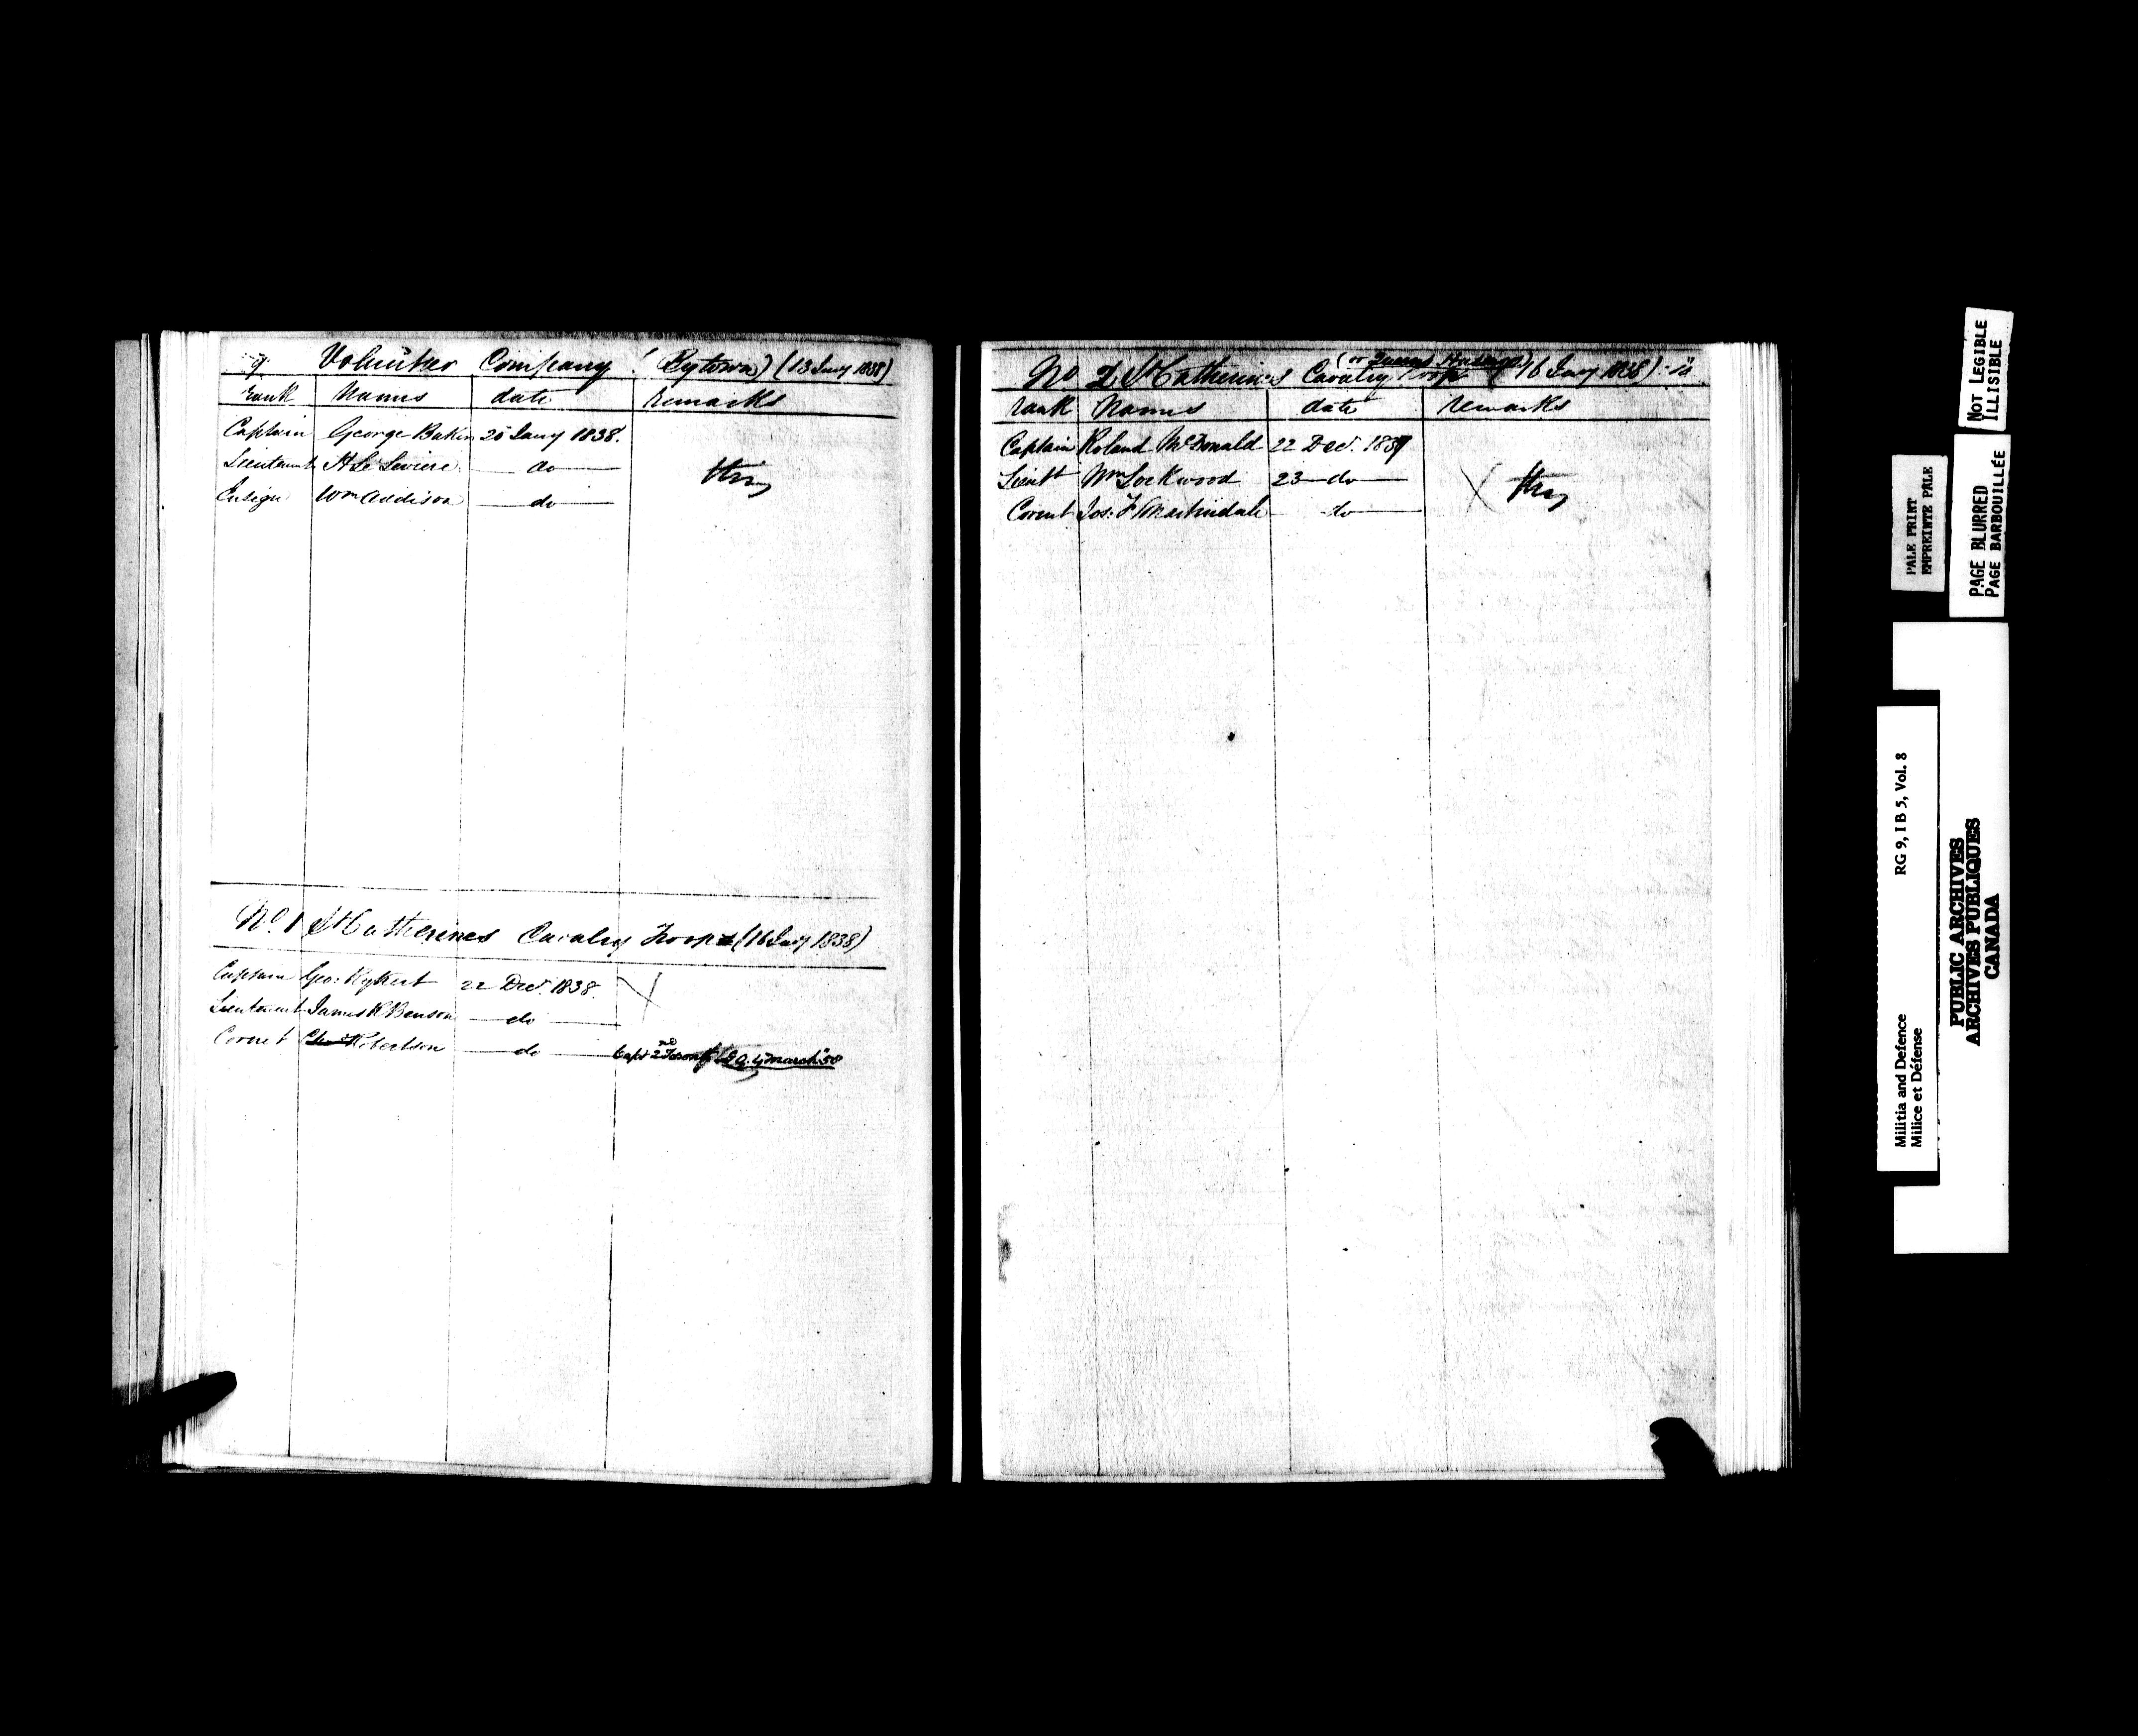 Volunteer Company (Bytown) (13 Jany 1838)
rank Names date remarks
Captain George Baker 25 Jany 1838.
Lieutenant H Le Leviere do
Ensign Wm Addison do
No. 1 St Catherines Cavalry Troop (16 Jany 1838)
Captain Geo: Rykert 22 Decr. 1838
Lieutenant James R Benson do
Cornet Robertson do Capt 2nd March
No 2 St Catherines Cavalry Troop (16 Jany 1838)
(or Queens Hussars)
rank Names date remarks
Captain Roland McDonald 22 Decr. 1837
Lieutt Wm Lockwood 23 do
Cornet Jos: F Martindale do
NOT LEGIBLE
ILLISIBLE
PALE PRINT
EMPREINTE PALE
PAGE BLURRED
PAGE BARBOUILLÉE
Militia and Defence RG 9, I B 5, Vol. 8
Milice et Défense
PUBLIC ARCHIVES
ARCHIVES PUBLIQUES
CANADA